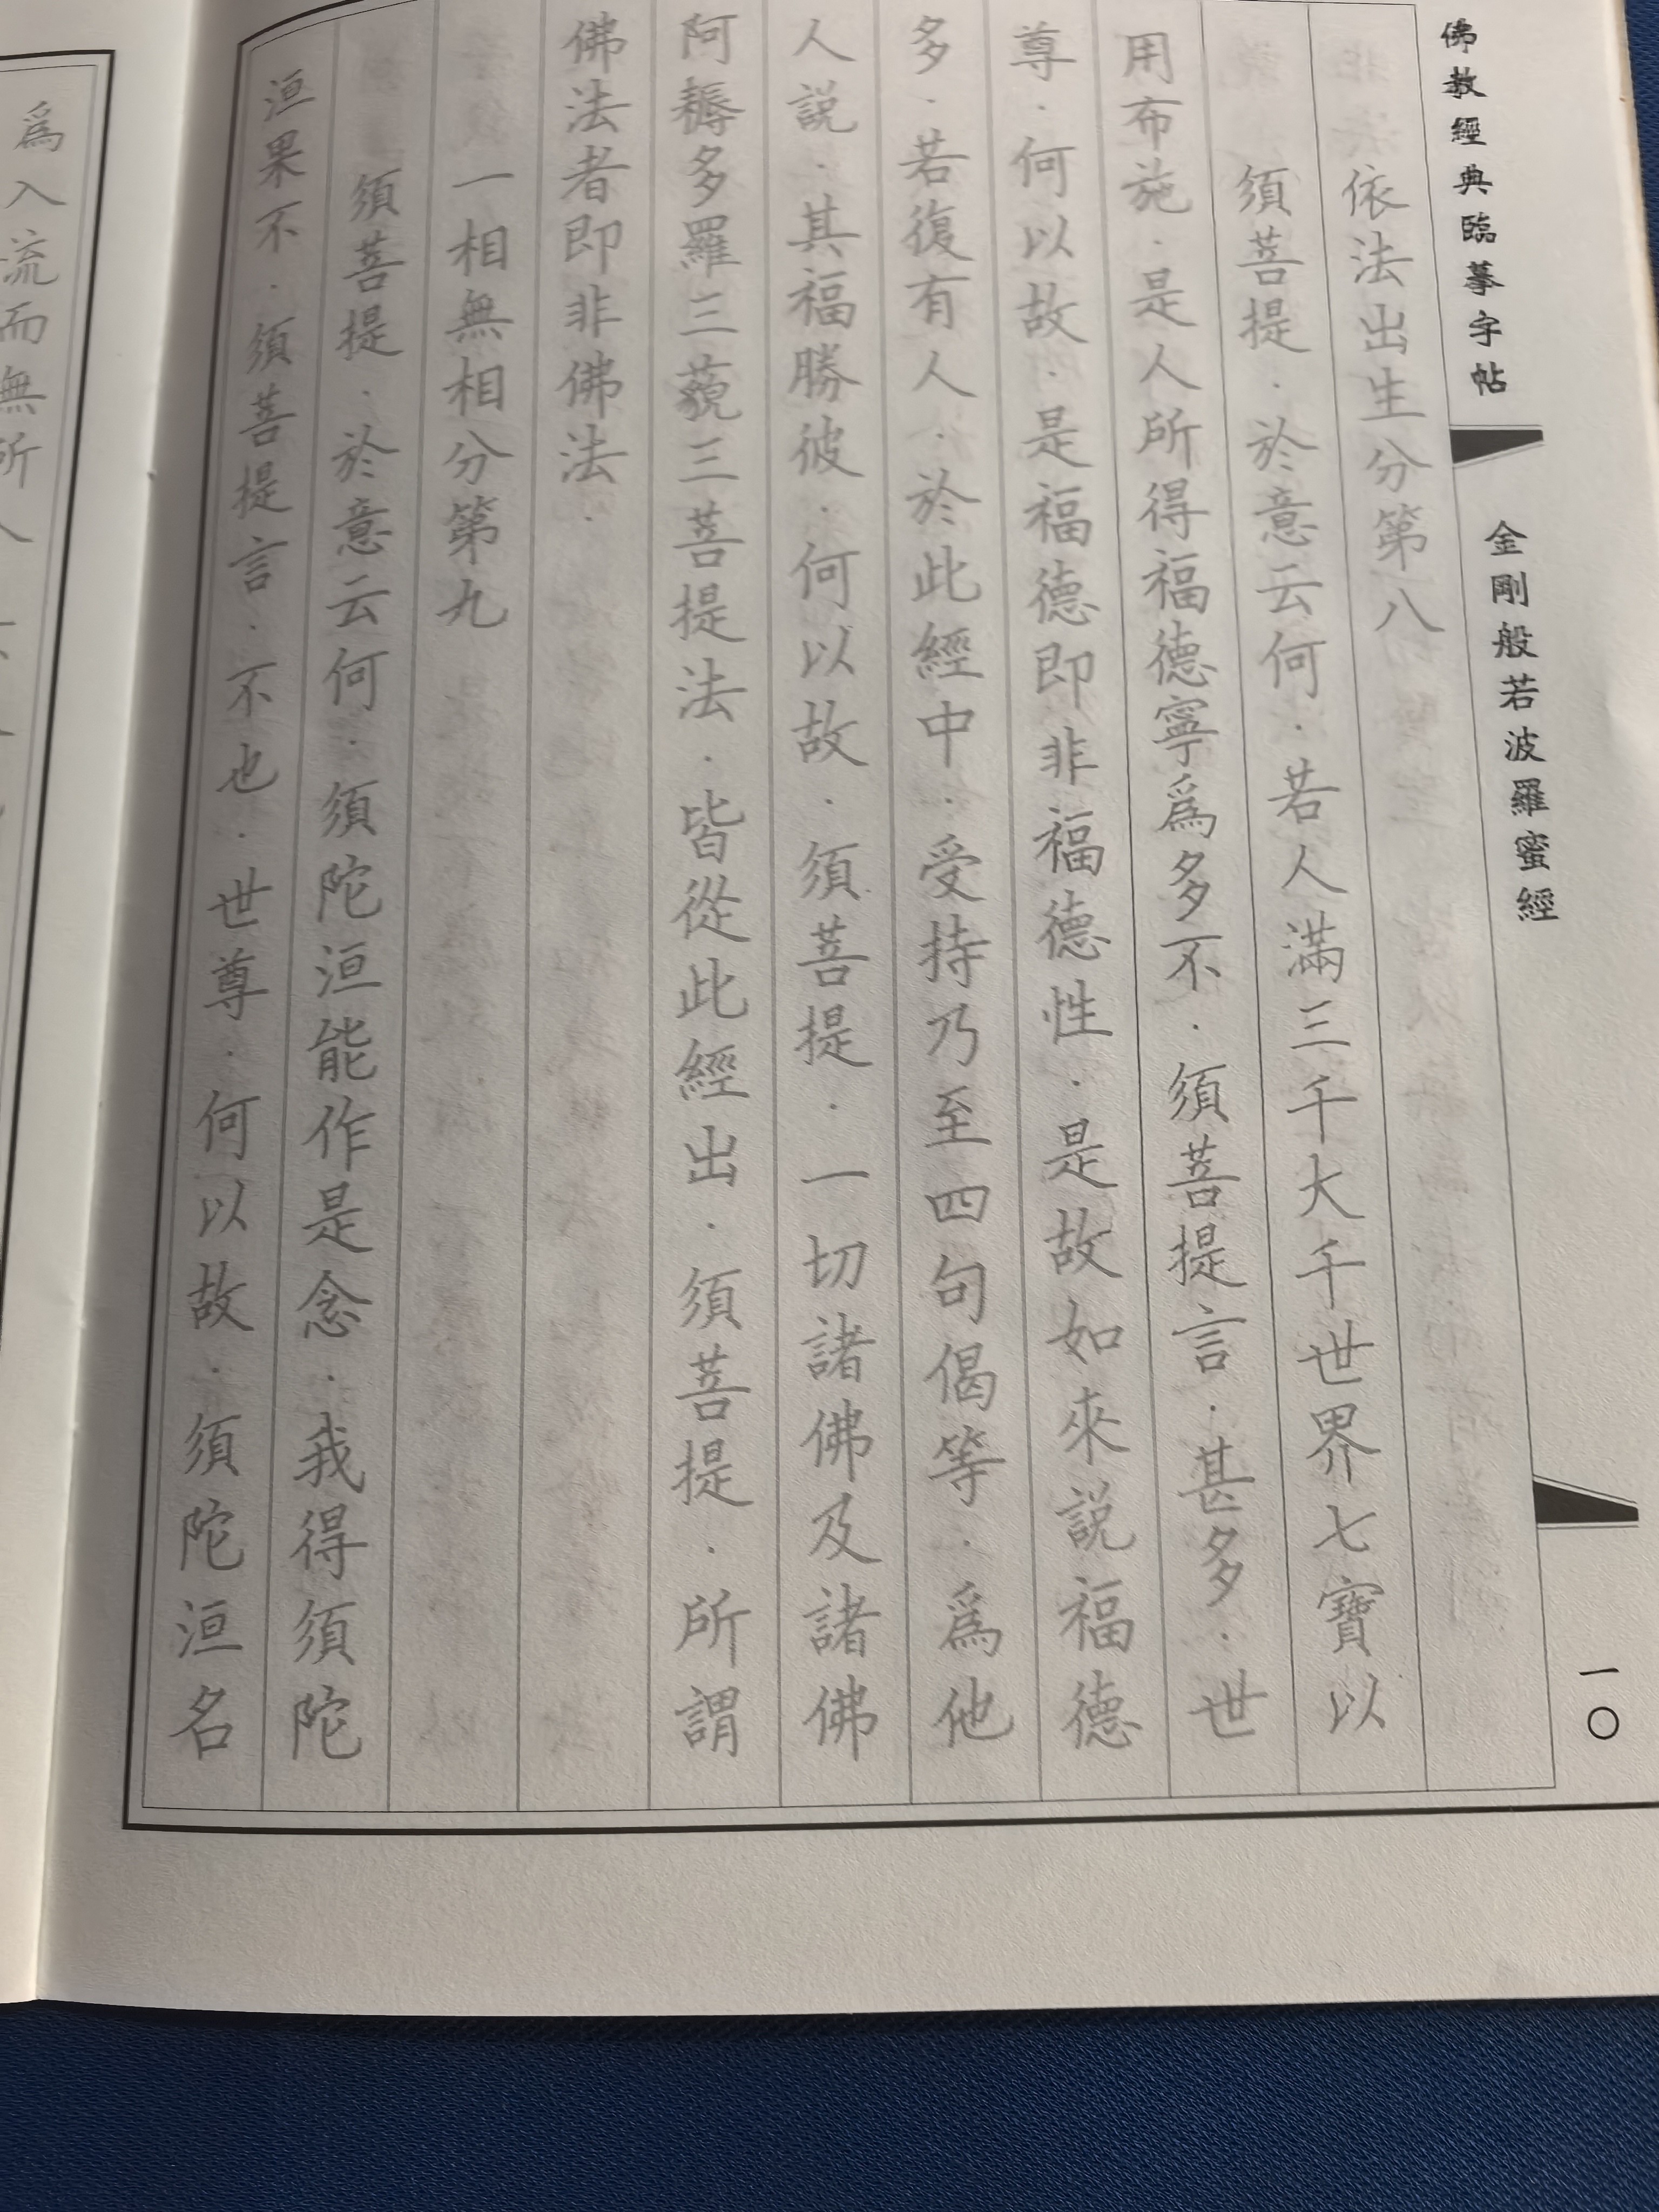 佛教經典臨摹字帖
金剛般若波羅蜜經
一〇
依法出生分第八
須菩提．於意云何．若人滿三千大千世界七寶以
用布施．是人所得福德寧爲多不．須菩提言．甚多．世
尊．何以故．是福德即非福德性．是故如來説福德
多．若復有人．於此經中．受持乃至四句偈等．爲他
人説．其福勝彼．何以故．須菩提．一切諸佛及諸佛
阿耨多羅三藐三菩提法．皆從此經出．須菩提．所謂
佛法者即非佛法．
一相無相分第九
須菩提．於意云何．須陀洹能作是念．我得須陀
洹果不．須菩提言．不也．世尊．何以故．須陀洹名
爲入流而無所入